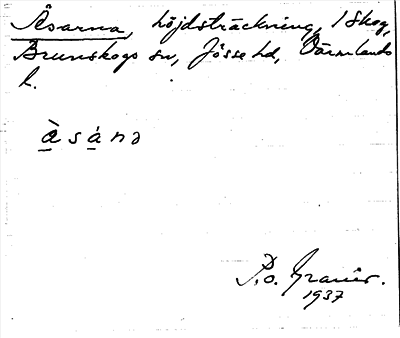 Åsarna, höjdsträckning, i Skog,
Brunskogs sn, Jösse hd, Värmlands
l.
à s á n ə
P.o. Granér.
1937